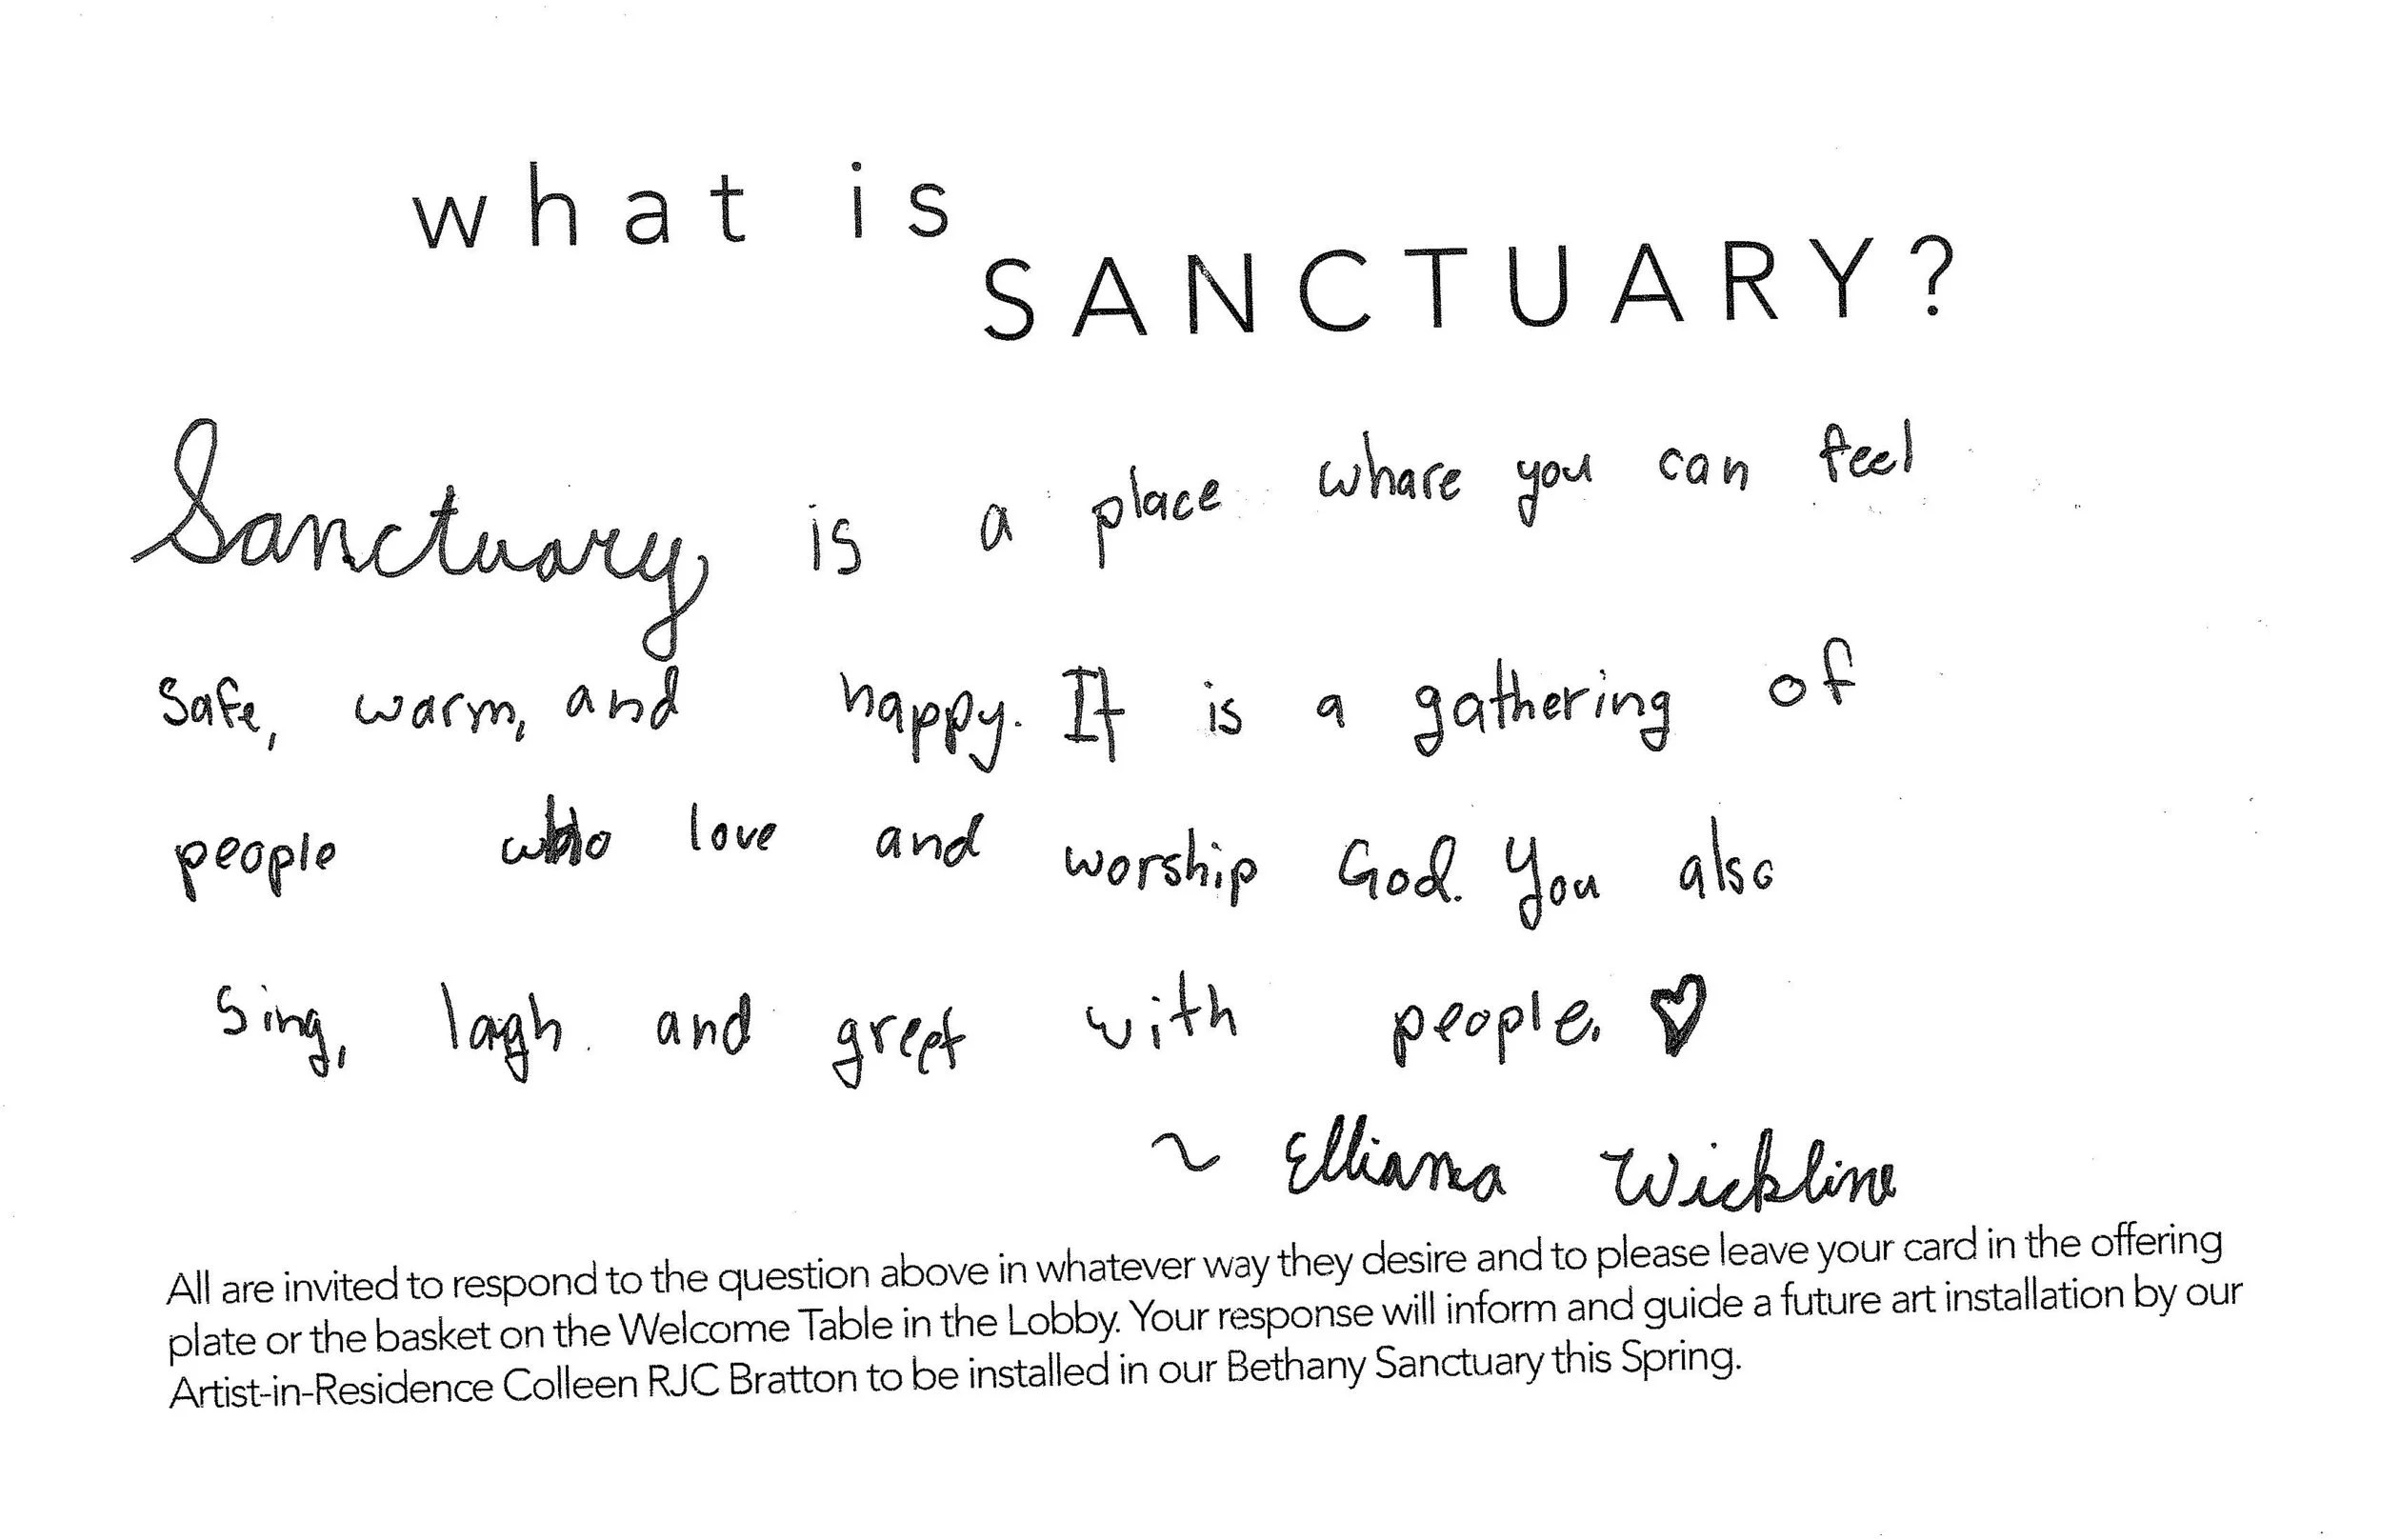 what is
SANCTUARY?
Sanctuary is a place whare you can feel
safe, warm, and happy. It is a gathering of
people who love and worship God. You also
sing, lagh and greet with people. ♡
~ Elliana Wickline
All are invited to respond to the question above in whatever way they desire and to please leave your card in the offering
plate or the basket on the Welcome Table in the Lobby. Your response will inform and guide a future art installation by our
Artist-in-Residence Colleen RJC Bratton to be installed in our Bethany Sanctuary this Spring.